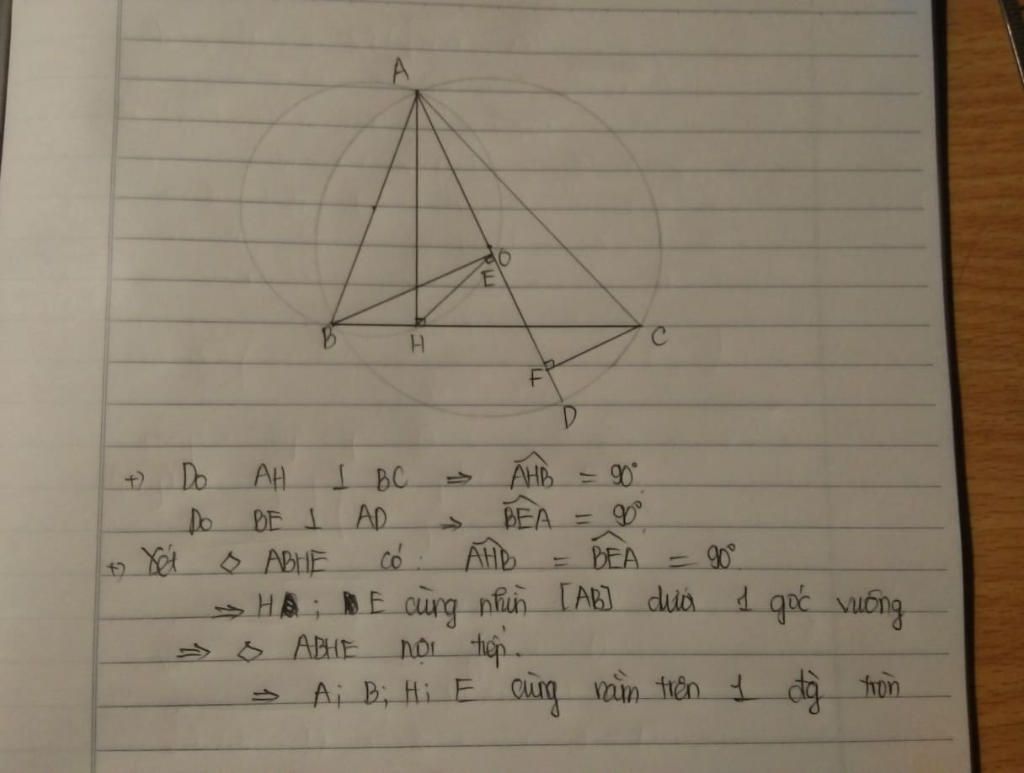 A
O
E
B
H
C
F
D
+) Do AH ⊥ BC ⇒ $\widehat{AHB}$ = 90°.
Do BE ⊥ AD ⇒ $\widehat{BEA}$ = 90°.
+) Xét ◇ ABHE có: $\widehat{AHB}$ = $\widehat{BEA}$ = 90°
⇒ H ; E cùng nhìn [AB] dưới 1 góc vuông
⇒ ◇ ABHE nội tiếp.
⇒ A; B; H; E cùng nằm trên 1 đg tròn